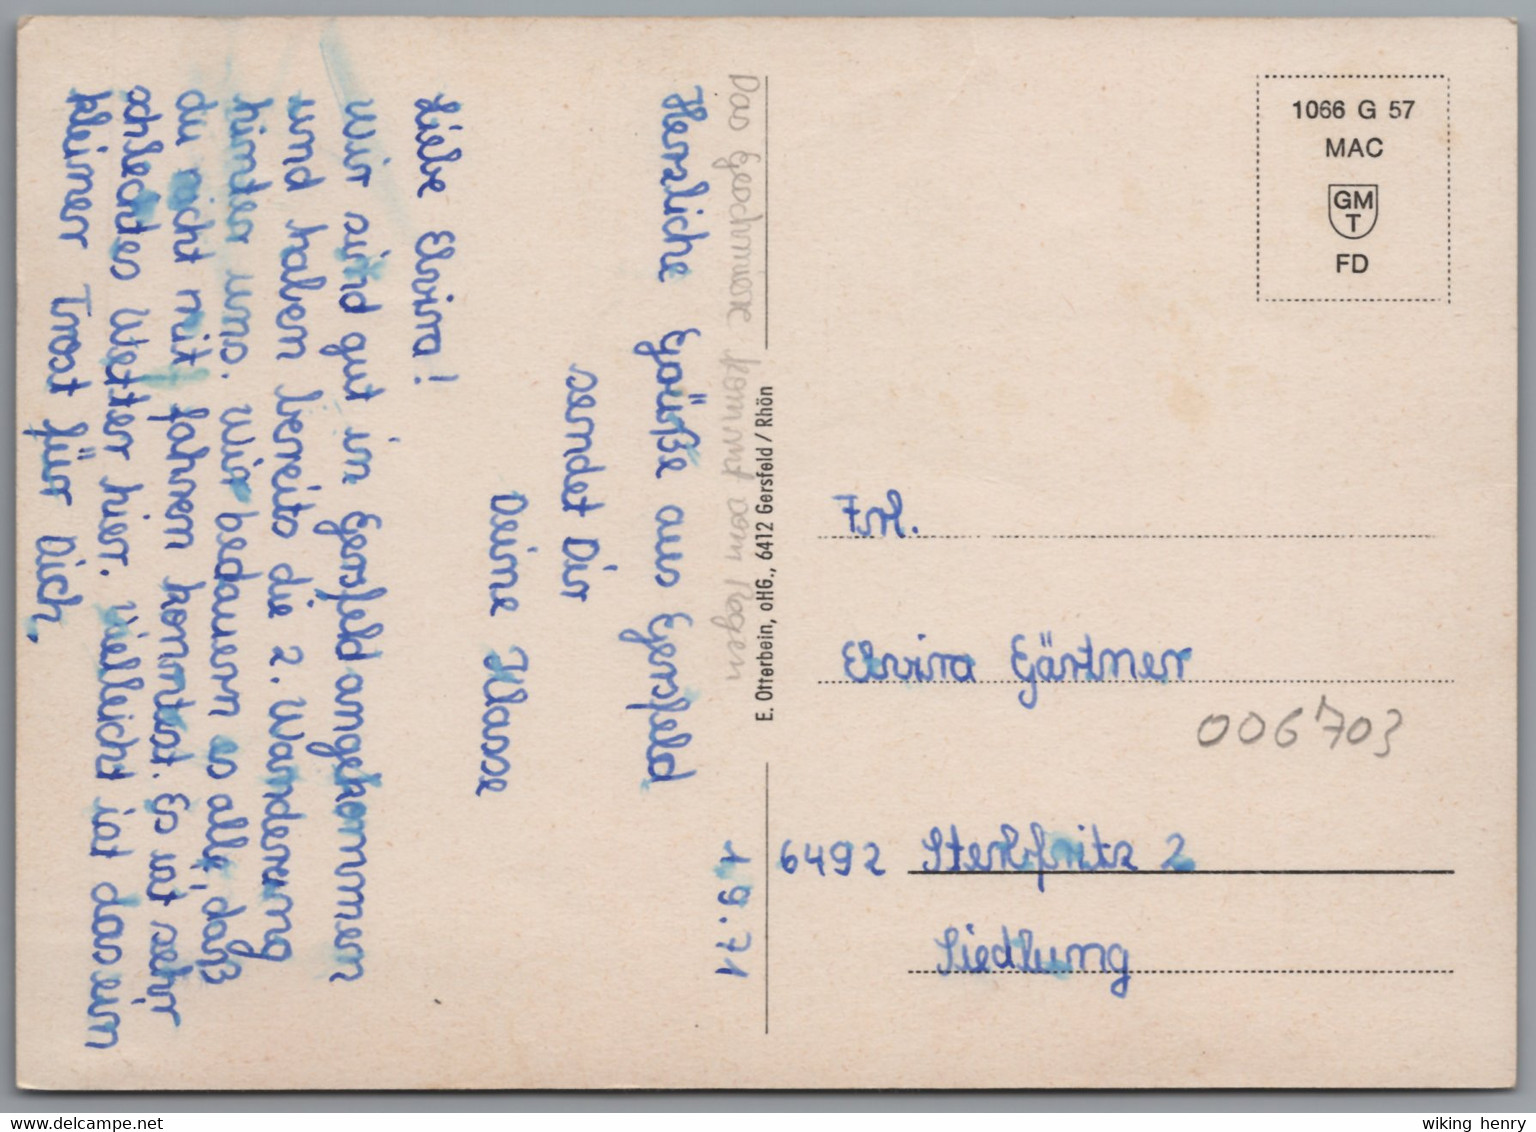 1.9.71
Das Geschmiere kommt vom Regen
Herzliche Grüße aus Gersfeld
sendet Dir
Deine Klasse
Liebe Elvira!
Wir sind gut in Gersfeld angekommen
und haben bereits die 2. Wanderung
hinter uns. Wir bedauern es alle, daß
du nicht mit fahren konntest. Es ist sehr
schlechtes Wetter hier. Vielleicht ist das ein
kleiner Trost für Dich.
E. Otterbein, oHG., 6412 Gersfeld / Rhön
1066 G 57
MAC
GM
T
FD
Frl.
Elvira Gärtner
006703
6492 Sterbfritz 2
Siedlung
www.delcampe.net
wiking henry